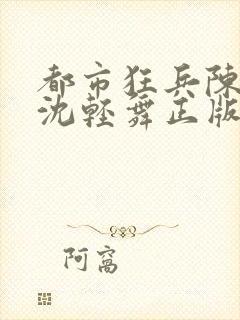 都市狂兵陳
沈輕舞正版
阿窩